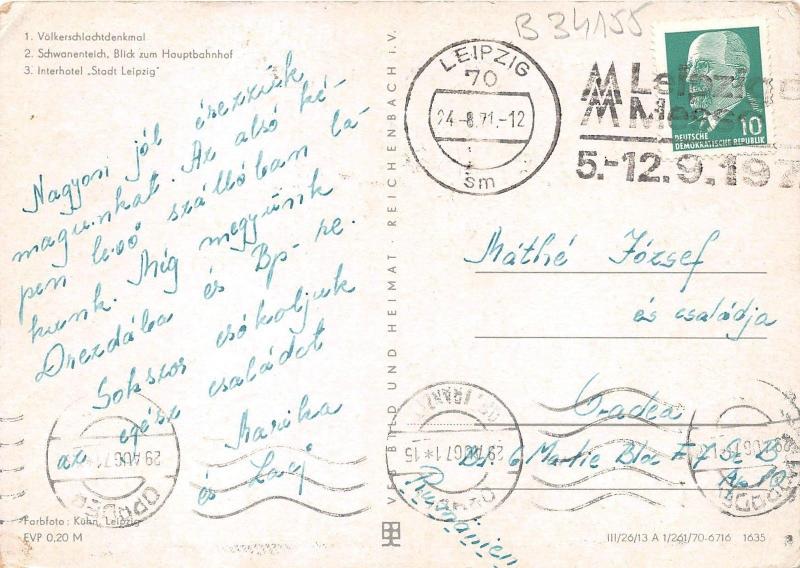 1. Völkerschlachtdenkmal
2. Schwanenteich, Blick zum Hauptbahnhof
3. Interhotel „Stadt Leipzig"
Nagyon jól érezzük
magunkat. Az alsó ké-
pen levő szállóban la-
kunk. Még megyünk
Drezdába és Bp-re.
Sokszor csókoljuk
az egész családot
Marika
és Laci
Farbfoto: Kühn, Leipzig
EVP 0,20 M
VEB BILD UND HEIMAT · REICHENBACH i. V.
B 34155
LEIPZIG
70
24.-8.71.-12
sm
MM Leipziger
MM Messe
5.-12.9.197
10
DEUTSCHE
DEMOKRATISCHE REPUBLIK
Máthé József
és családja
Oradea
6 Martie Bloc
Rumänien
ORADEA
29 AUG 71 * 15
III/26/13 A 1/261/70-6716 1635